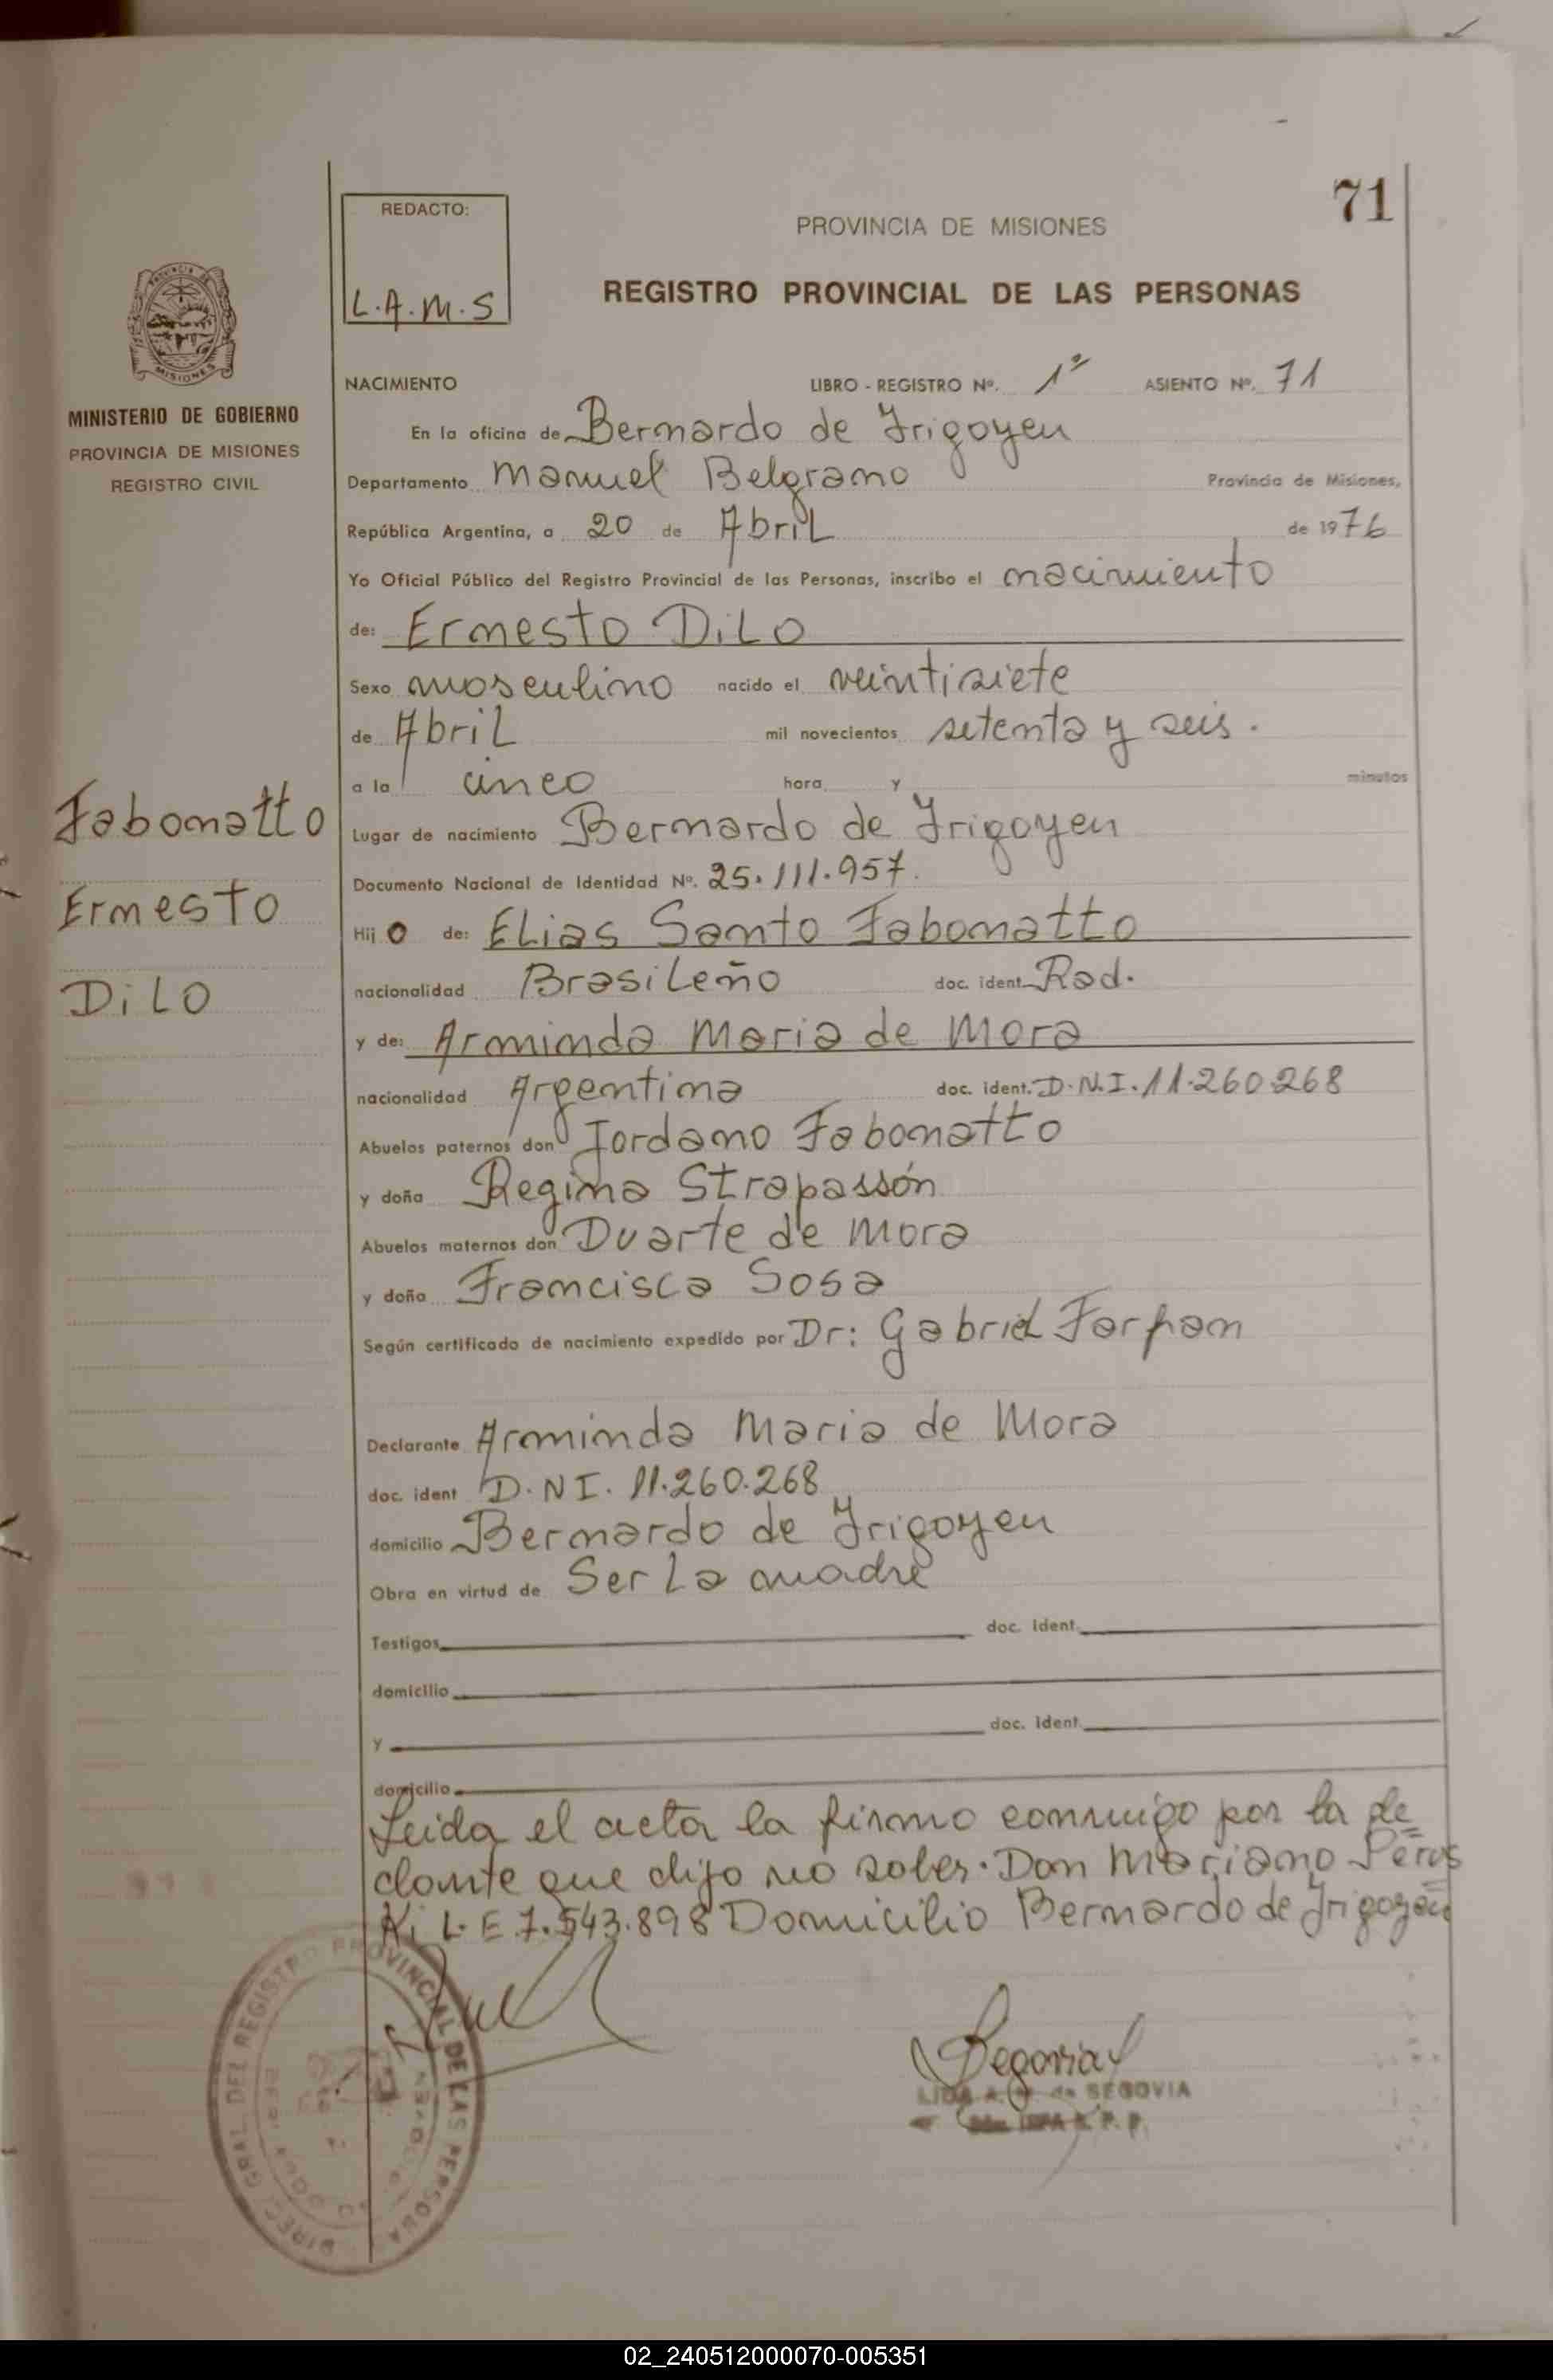 71
REDACTO:
L.A.M.S
PROVINCIA DE MISIONES
REGISTRO PROVINCIAL DE LAS PERSONAS
MISIONES
MINISTERIO DE GOBIERNO
PROVINCIA DE MISIONES
REGISTRO CIVIL
NACIMIENTO LIBRO - REGISTRO Nº. 1º ASIENTO Nº. 71
En la oficina de Bernardo de Irigoyen
Departamento Manuel Belgrano Provincia de Misiones,
República Argentina, a 20 de Abril de 1976
Yo Oficial Público del Registro Provincial de las Personas, inscribo el nacimiento
de: Ernesto Dilo
Sexo masculino nacido el veintisiete
de Abril mil novecientos setenta y seis.
a la cinco hora y minutos
Fabonatto
Ernesto
Dilo
Lugar de nacimiento Bernardo de Irigoyen
Documento Nacional de Identidad Nº. 25.111.957.
Hij o de: Elias Santo Fabonatto
nacionalidad Brasileño doc. ident. Rad.
y de: Arminda Maria de Mora
nacionalidad Argentina doc. ident. D.N.I. 11.260.268
Abuelos paternos don Jordano Fabonatto
y doña Regina Strapassón
Abuelos maternos don Duarte de Mora
y doña Francisca Sosa
Según certificado de nacimiento expedido por Dr: Gabriel Farfan
Declarante Arminda Maria de Mora
doc. ident D.NI. 11.260.268
domicilio Bernardo de Irigoyen
Obra en virtud de Ser La madre
Testigos doc. ident.
domicilio
y doc. ident.
domicilio
Leida el acta la firmo conmigo por la de
clante que dijo no saber. Don Mariano
L.E 7.543.898 Domicilio Bernardo de Irigoyen
DIREC. GRAL. DEL REGISTRO PROVINCIAL DE LAS PERSONAS
Segovia
LIDA A. de SEGOVIA
02_240512000070-005351